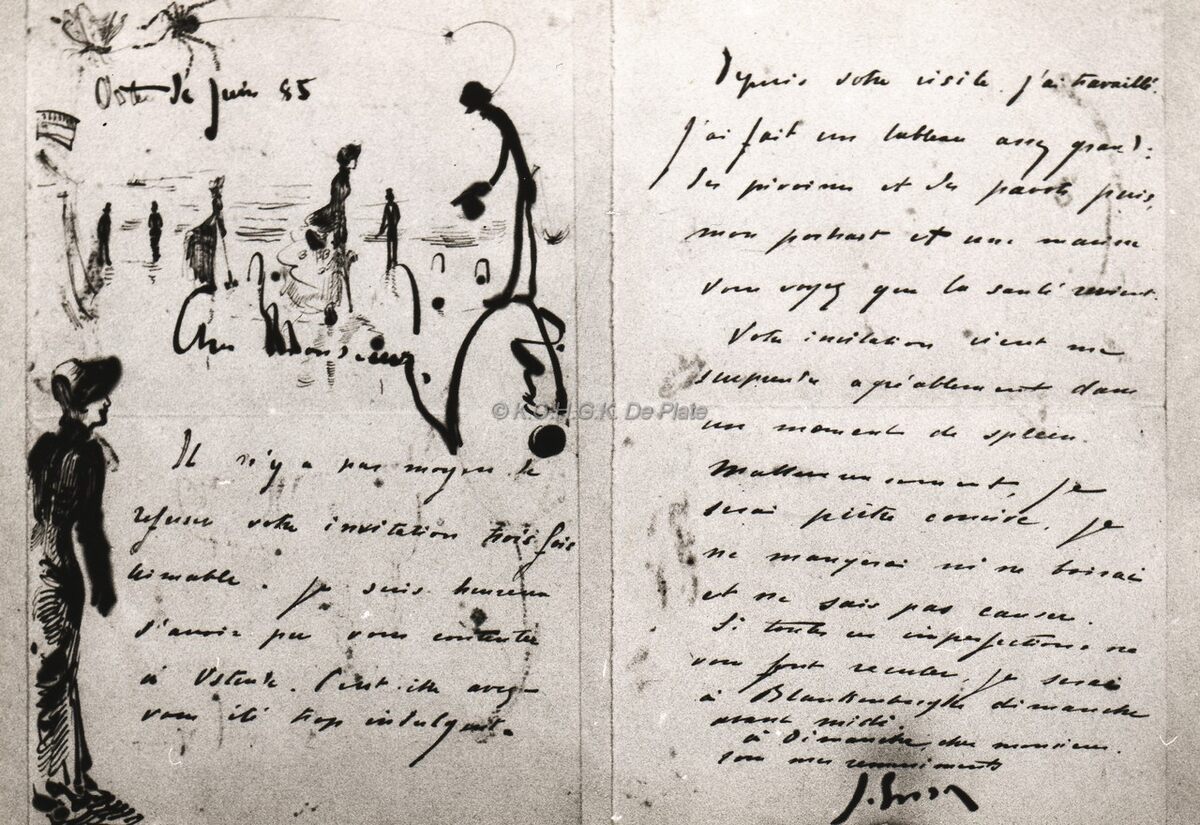 Ostende Juin 85
Cher Monsieur
Il n'y a pas moyen de
refuser votre invitation trois fois
aimable. Je suis heureux
d'avoir pu vous contenter
à Ostende. Peut-être avez-
vous été trop indulgent.
Depuis votre visite j'ai travaillé.
J'ai fait un tableau assez grand :
des pivoines et des pavots puis,
mon portrait et une marine
vous voyez que la santé revient.
Votre invitation vient me
surprendre agréablement dans
un moment de spleen.
Malheureusement, je
serai piètre convive. Je
ne mangerai ni ne boirai
et ne sais pas causer.
Si toutes ces imperfections ne
vous font reculer, je serai
à Blankenberghe dimanche
avant midi.
à Dimanche, cher monsieur.
mes remerciements
J. Ensor
© K.O.H.G.K. De Plate